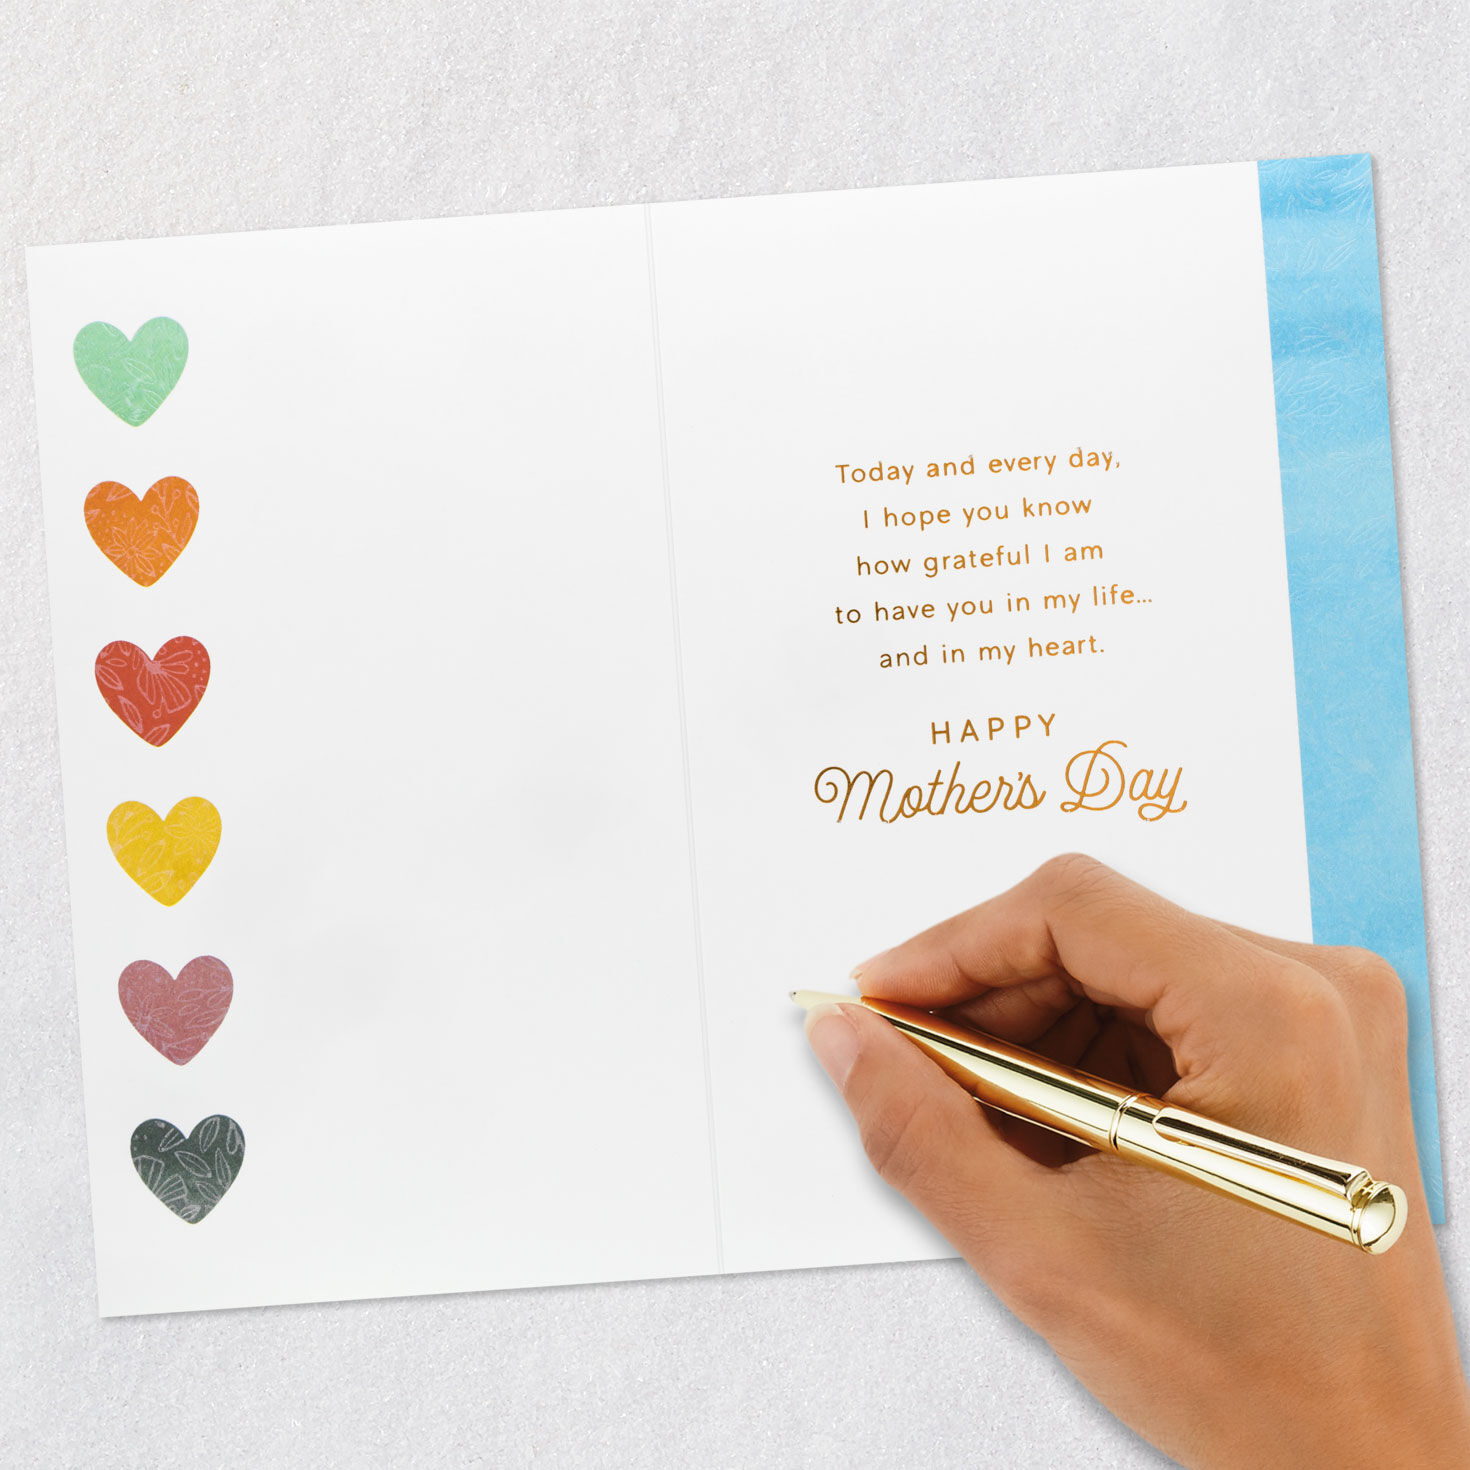 Today and every day,
I hope you know
how grateful I am
to have you in my life...
and in my heart.
HAPPY
Mother's Day